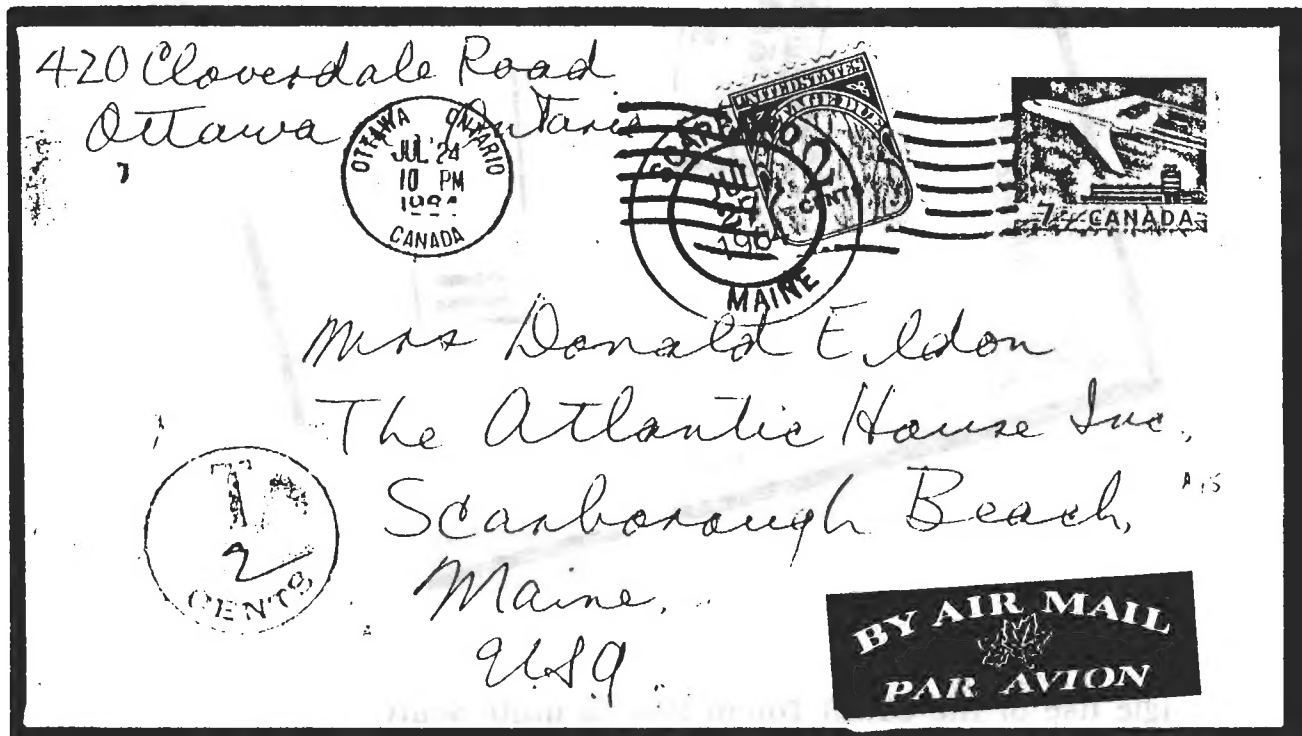 420 Cloverdale Road
Ottawa Ontario
7
OTTAWA ONTARIO
JUL 24
10 PM
CANADA
UNITED STATES
2
CENTS
MAINE
7 CANADA
Mrs Donald Eldon
The Atlantic House Inc.
Scarborough Beach,
Maine.
USA
T
2
CENTS
BY AIR MAIL
PAR AVION